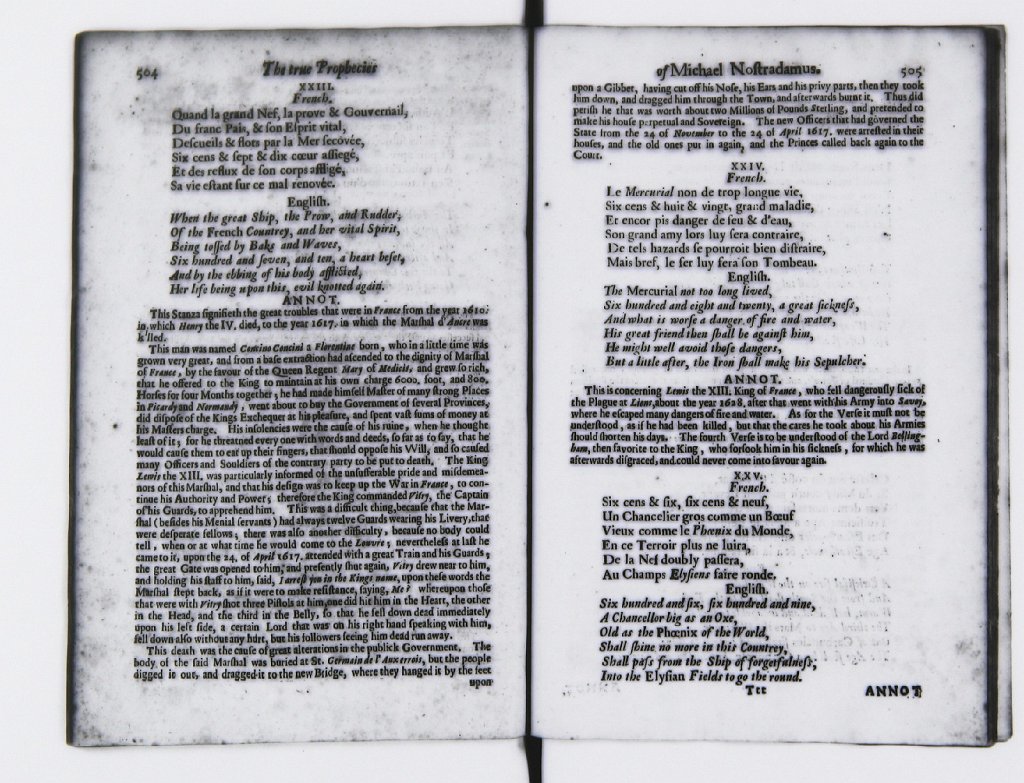 504 The true Prophecies
XXIII.
French.
Quand la grand Nef, la prove & Gouvernail,
Du franc Pais, & ſon Eſprit vital,
Deſcueils & flots par la Mer ſecovée,
Six cens & ſept & dix cœur aſſiegé,
Et des reflux de ſon corps affligé,
Sa vie eſtant ſur ce mal renovée.
Engliſh.
When the great Ship, the Prow, and Rudder,
Of the French Countrey, and her vital Spirit,
Being toſſed by Bake and Waves,
Six hundred and ſeven, and ten, a heart beſet,
And by the ebbing of his body afflicted,
Her life being upon this, evil knotted again.
ANNOT.
This Stanza ſignifieth the great troubles that were in France from the year 1610.
in which Henry the IV. died, to the year 1617. in which the Marſhal d'Ancre was
k'lled.
This man was named Concino Concini a Florentine born, who in a little time was
grown very great, and from a baſe extraction had aſcended to the dignity of Marſhal
of France, by the favour of the Queen Regent Mary of Medicis, and grew ſo rich,
that he offered to the King to maintain at his own charge 6000. foot, and 800.
Horſes for four Months together; he had made himſelf Maſter of many ſtrong Places
in Picardy and Normandy, went about to buy the Government of ſeveral Provinces,
did diſpoſe of the Kings Exchequer at his pleaſure, and ſpent vaſt ſums of money at
his Maſters charge. His inſolencies were the cauſe of his ruine, when he thought
leaſt of it; for he threatned every one with words and deeds, ſo far as to ſay, that he
would cauſe them to eat up their fingers, that ſhould oppoſe his Will, and ſo cauſed
many Officers and Souldiers of the contrary party to be put to death. The King
Lewis the XIII. was particularly informed of the unſufferable pride and miſdemea-
nors of this Marſhal, and that his deſign was to keep up the War in France, to con-
tinue his Authority and Power; therefore the King commanded Vitry, the Captain
of his Guards, to apprehend him. This was a difficult thing, becauſe that the Mar-
ſhal (beſides his Menial ſervants) had always twelve Guards wearing his Livery, that
were deſperate fellows; there was alſo another difficulty, becauſe no body could
tell, when or at what time he would come to the Louvre; nevertheleſs at laſt he
came to it, upon the 24. of April 1617. attended with a great Train and his Guards;
the great Gate was opened to him, and preſently ſhut again, Vitry drew near to him,
and holding his ſtaff to him, ſaid, I areſt you in the Kings name, upon theſe words the
Marſhal ſtept back, as if it were to make reſiſtance, ſaying, Me? whereupon thoſe
that were with Vitry ſhot three Piſtols at him, one did hit him in the Heart, the other
in the Head, and the third in the Belly, ſo that he fell down dead immediately
upon his left ſide, a certain Lord that was on his right hand ſpeaking with him,
fell down alſo without any hurt, but his followers ſeeing him dead run away.
This death was the cauſe of great alterations in the publick Government. The
body of the ſaid Marſhal was buried at St. Germain de l'Auxerrois, but the people
digged it out, and dragged it to the new Bridge, where they hanged it by the feet
upon
of Michael Noſtradamus. 505
upon a Gibbet, having cut off his Noſe, his Ears and his privy parts, then they took
him down, and dragged him through the Town, and afterwards burnt it. Thus did
periſh he that was worth about two Millions of Pounds Sterling, and pretended to
make his houſe perpetual and Sovereign. The new Officers that had governed the
State from the 24 of November to the 24 of April 1617. were arreſted in their
houſes, and the old ones put in again, and the Princes called back again to the
Court.
XXIV.
French.
Le Mercurial non de trop longue vie,
Six cens & huit & vingt, grand maladie,
Et encor pis danger de feu & d'eau,
Son grand amy lors luy ſera contraire,
De tels hazards ſe pourroit bien diſtraire,
Mais bref, le fer luy ſera ſon Tombeau.
Engliſh.
The Mercurial not too long lived,
Six hundred and eight and twenty, a great ſickneſs,
And what is worſe a danger of fire and water,
His great friend then ſhall be againſt him,
He might well avoid thoſe dangers,
But a little after, the Iron ſhall make his Sepulcher.
ANNOT.
This is concerning Lewis the XIII. King of France, who fell dangerouſly ſick of
the Plague at Lions, about the year 1628, after that went with his Army into Savoy,
where he eſcaped many dangers of fire and water. As for the Verſe it muſt not be
underſtood, as if he had been killed, but that the cares he took about his Armies
ſhould ſhorten his days. The fourth Verſe is to be underſtood of the Lord Belling-
ham, then favorite to the King, who forſook him in his ſickneſs, for which he was
afterwards diſgraced, and could never come into favour again.
XXV.
French.
Six cens & ſix, ſix cens & neuf,
Un Chancelier gros comme un Bœuf
Vieux comme le Phœnix du Monde,
En ce Terroir plus ne luira,
De la Nef doubly paſſera,
Au Champs Elyſiens faire ronde.
Engliſh.
Six hundred and ſix, ſix hundred and nine,
A Chancellor big as an Oxe,
Old as the Phœnix of the World,
Shall ſhine no more in this Countrey,
Shall paſs from the Ship of forgetfulneſs,
Into the Elyſian Fields to go the round.
Ttt ANNOT